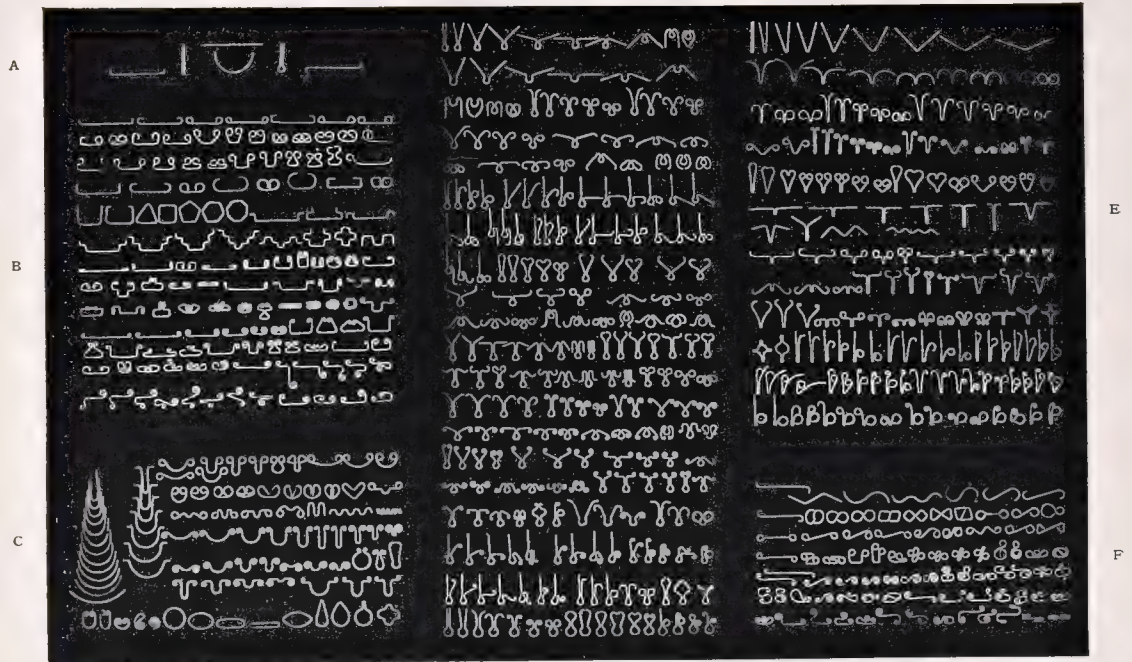 A
B
C
E
F